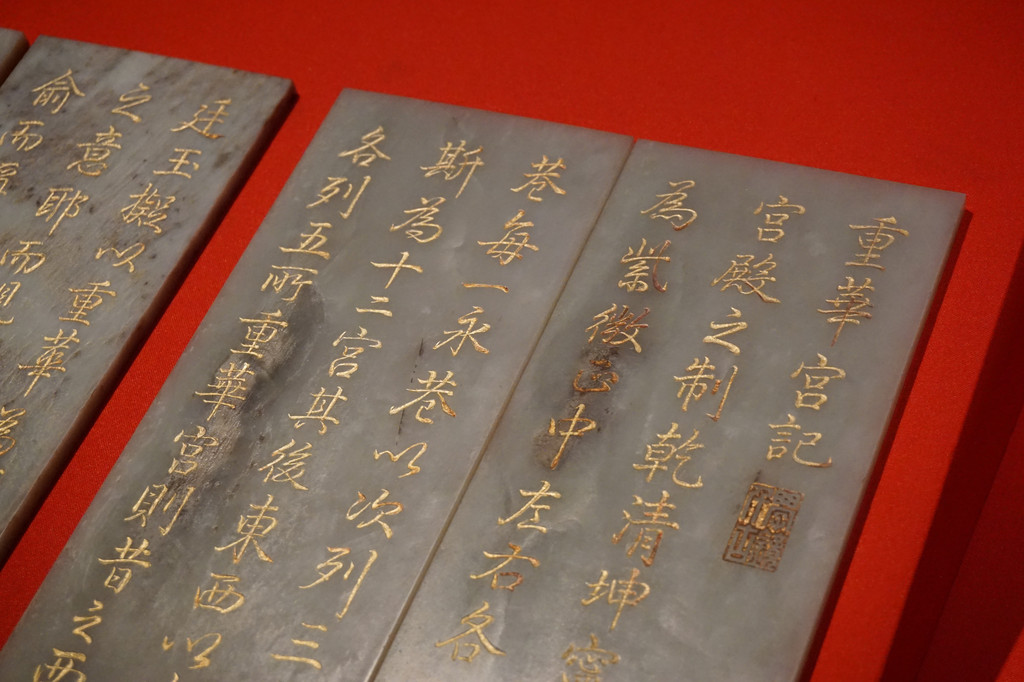 重華宮記
宮殿之制乾清坤寧
為紫微正中左右各
巷每一永巷以次列三
斯為十二宮其後東西以
各列五所重華宮則昔之西
廷玉擬以重華
之意耶而見
俞而